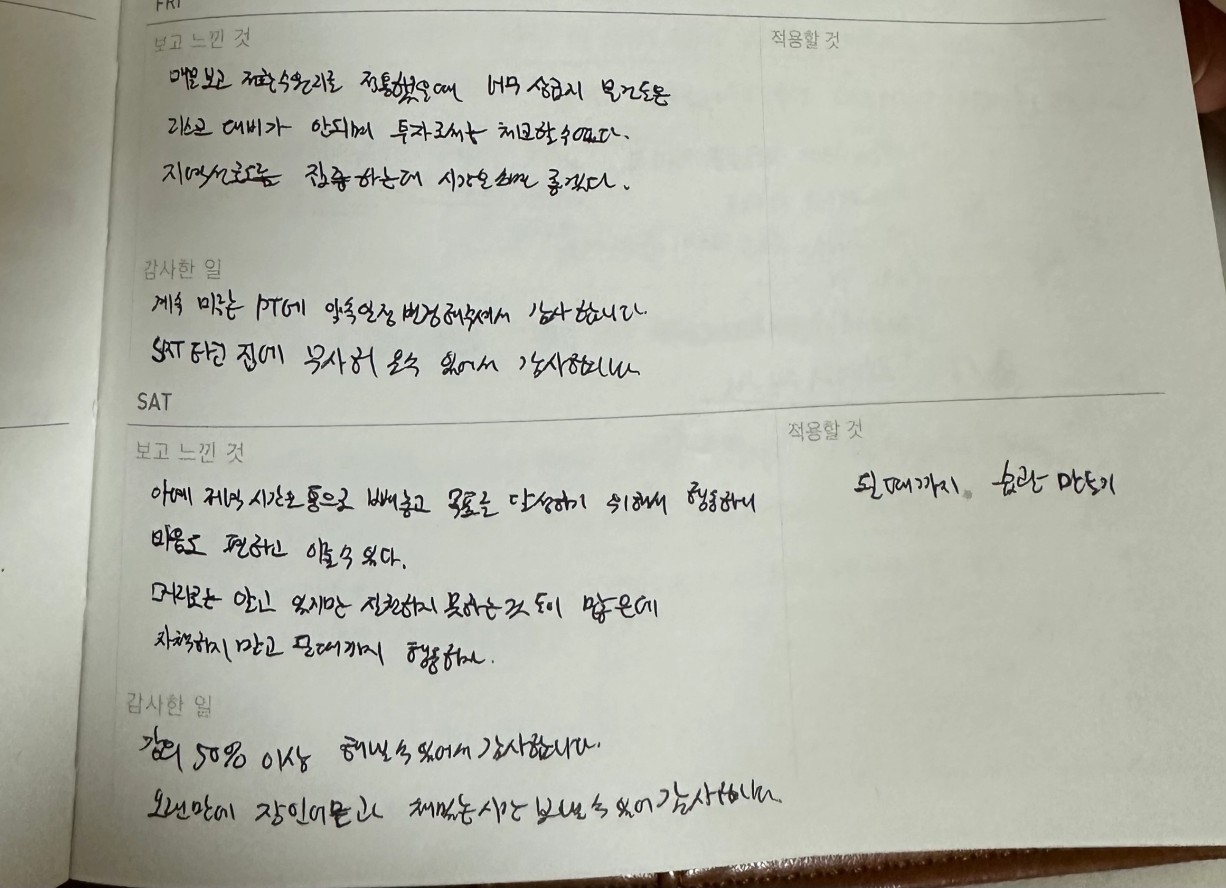 FRI
보고 느낀 것
적용할 것
매물보고 전화 했을때 너무 상급지 물건들은
리스크 대비가 안되며 투자로써는 체크할 수 없다.
지역선호도를 집중하는데 시간을 쓰면 좋겠다.
감사한 일
계속 미루는 PT에 약속일정 변경해주셔서 감사합니다.
SRT 타고 집에 무사히 올 수 있어서 감사합니다.
SAT
보고 느낀 것
적용할 것
아예 저녁시간을 통으로 빼놓고 목표를 달성하기 위해서 행동하니
될때까지 습관 만들기
마음도 편하고 이룰 수 있다.
머리로는 알고 있지만 실천하지 못하는 것들이 많은데
자책하지 말고 될때까지 행동하자.
감사한 일
강의 50% 이상 해낼 수 있어서 감사합니다.
오랜만에 장인어른과 재밌는 시간 보낼 수 있어 감사합니다.